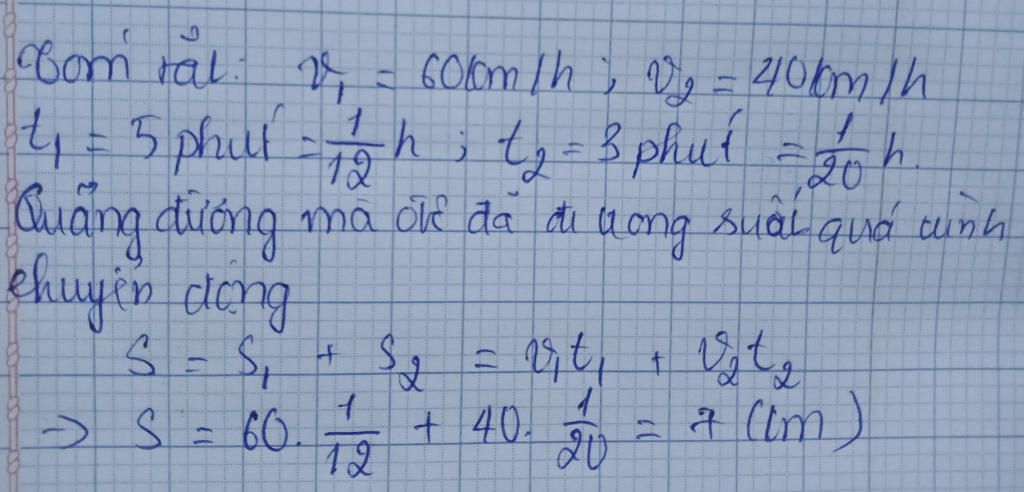 Tóm tắt: v₁ = 60km/h ; v₂ = 40km/h
t₁ = 5 phút = 1/12 h ; t₂ = 3 phút = 1/20 h.
Quãng đường mà ôtô đã đi trong suất quá trình
chuyển động
S = S₁ + S₂ = v₁t₁ + v₂t₂
→ S = 60. 1/12 + 40. 1/20 = 7 (km)